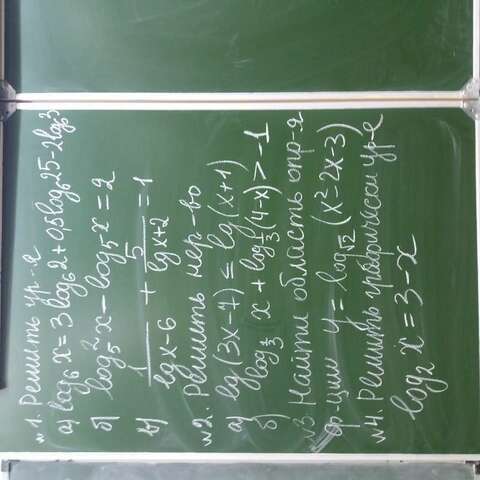 №1. Решить ур-я
а) log₆ x = 3 log₆ 2 + 0,5 log₆ 25 - 2 log₆ 3
б) log₅² x - log₅ x = 2
в) 1/(lg x - 6) + 5/(lg x + 2) = 1
№2. Решить нер-во
а) lg (3x - 7) ≤ lg (x + 1)
б) log_{1/3} x + log_{1/3} (4 - x) > -1
№3 Найти область опр-я
ф-ции y = log_{√2} (x² - 2x - 3)
№4. Решить графически ур-е
log₂ x = 3 - x